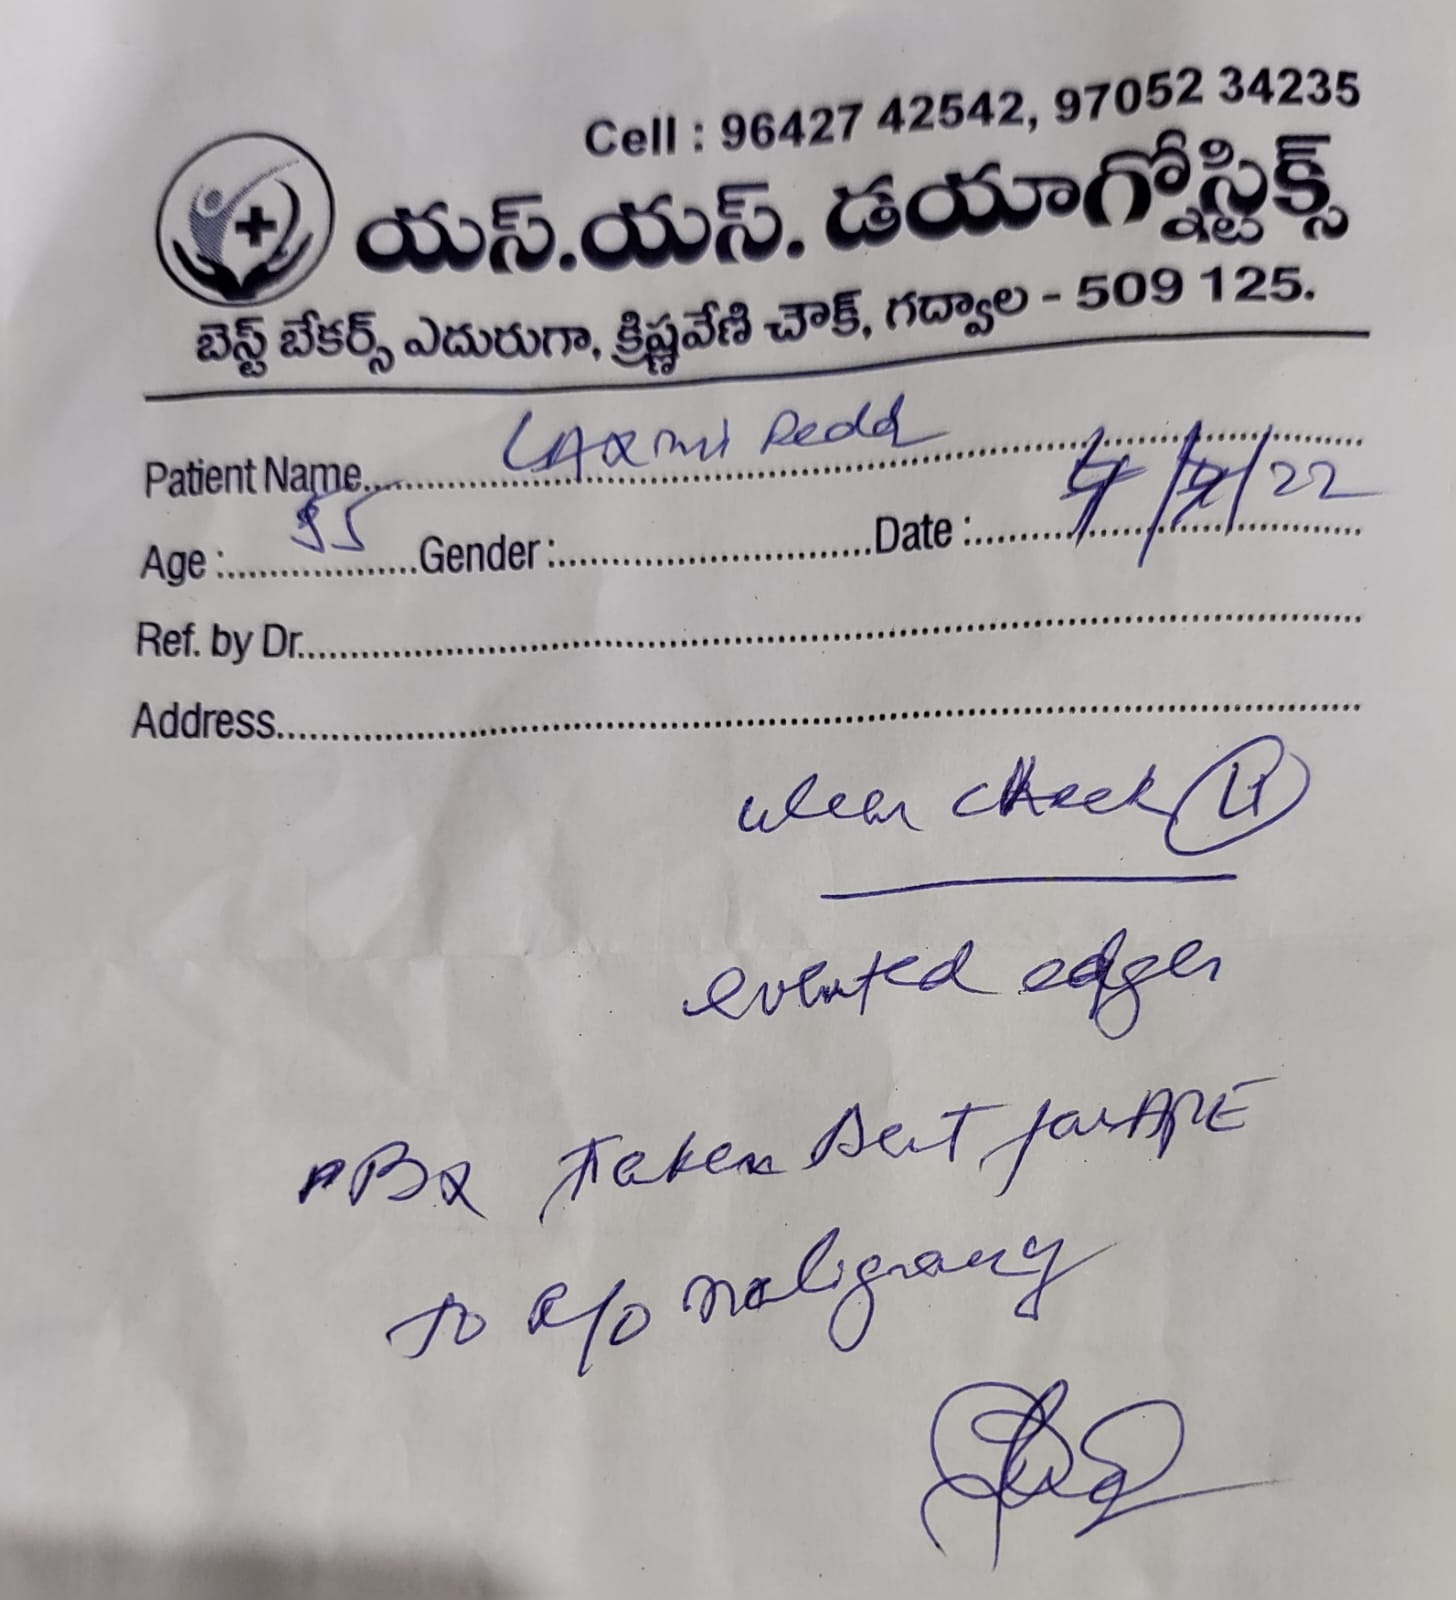 Cell : 96427 42542, 97052 34235
యస్.యస్. డయాగ్నోస్టిక్స్
బెస్ట్ బేకర్స్ ఎదురుగా, క్రిష్ణవేణి చౌక్, గద్వాల - 509 125.
Patient Name LAXmi Redd
Age : 55 Gender : Date : 4/ /22
Ref. by Dr.
Address
ulcer cheek Lt
everted edges
Bx Taken sent for HPE
To R/o malignancy